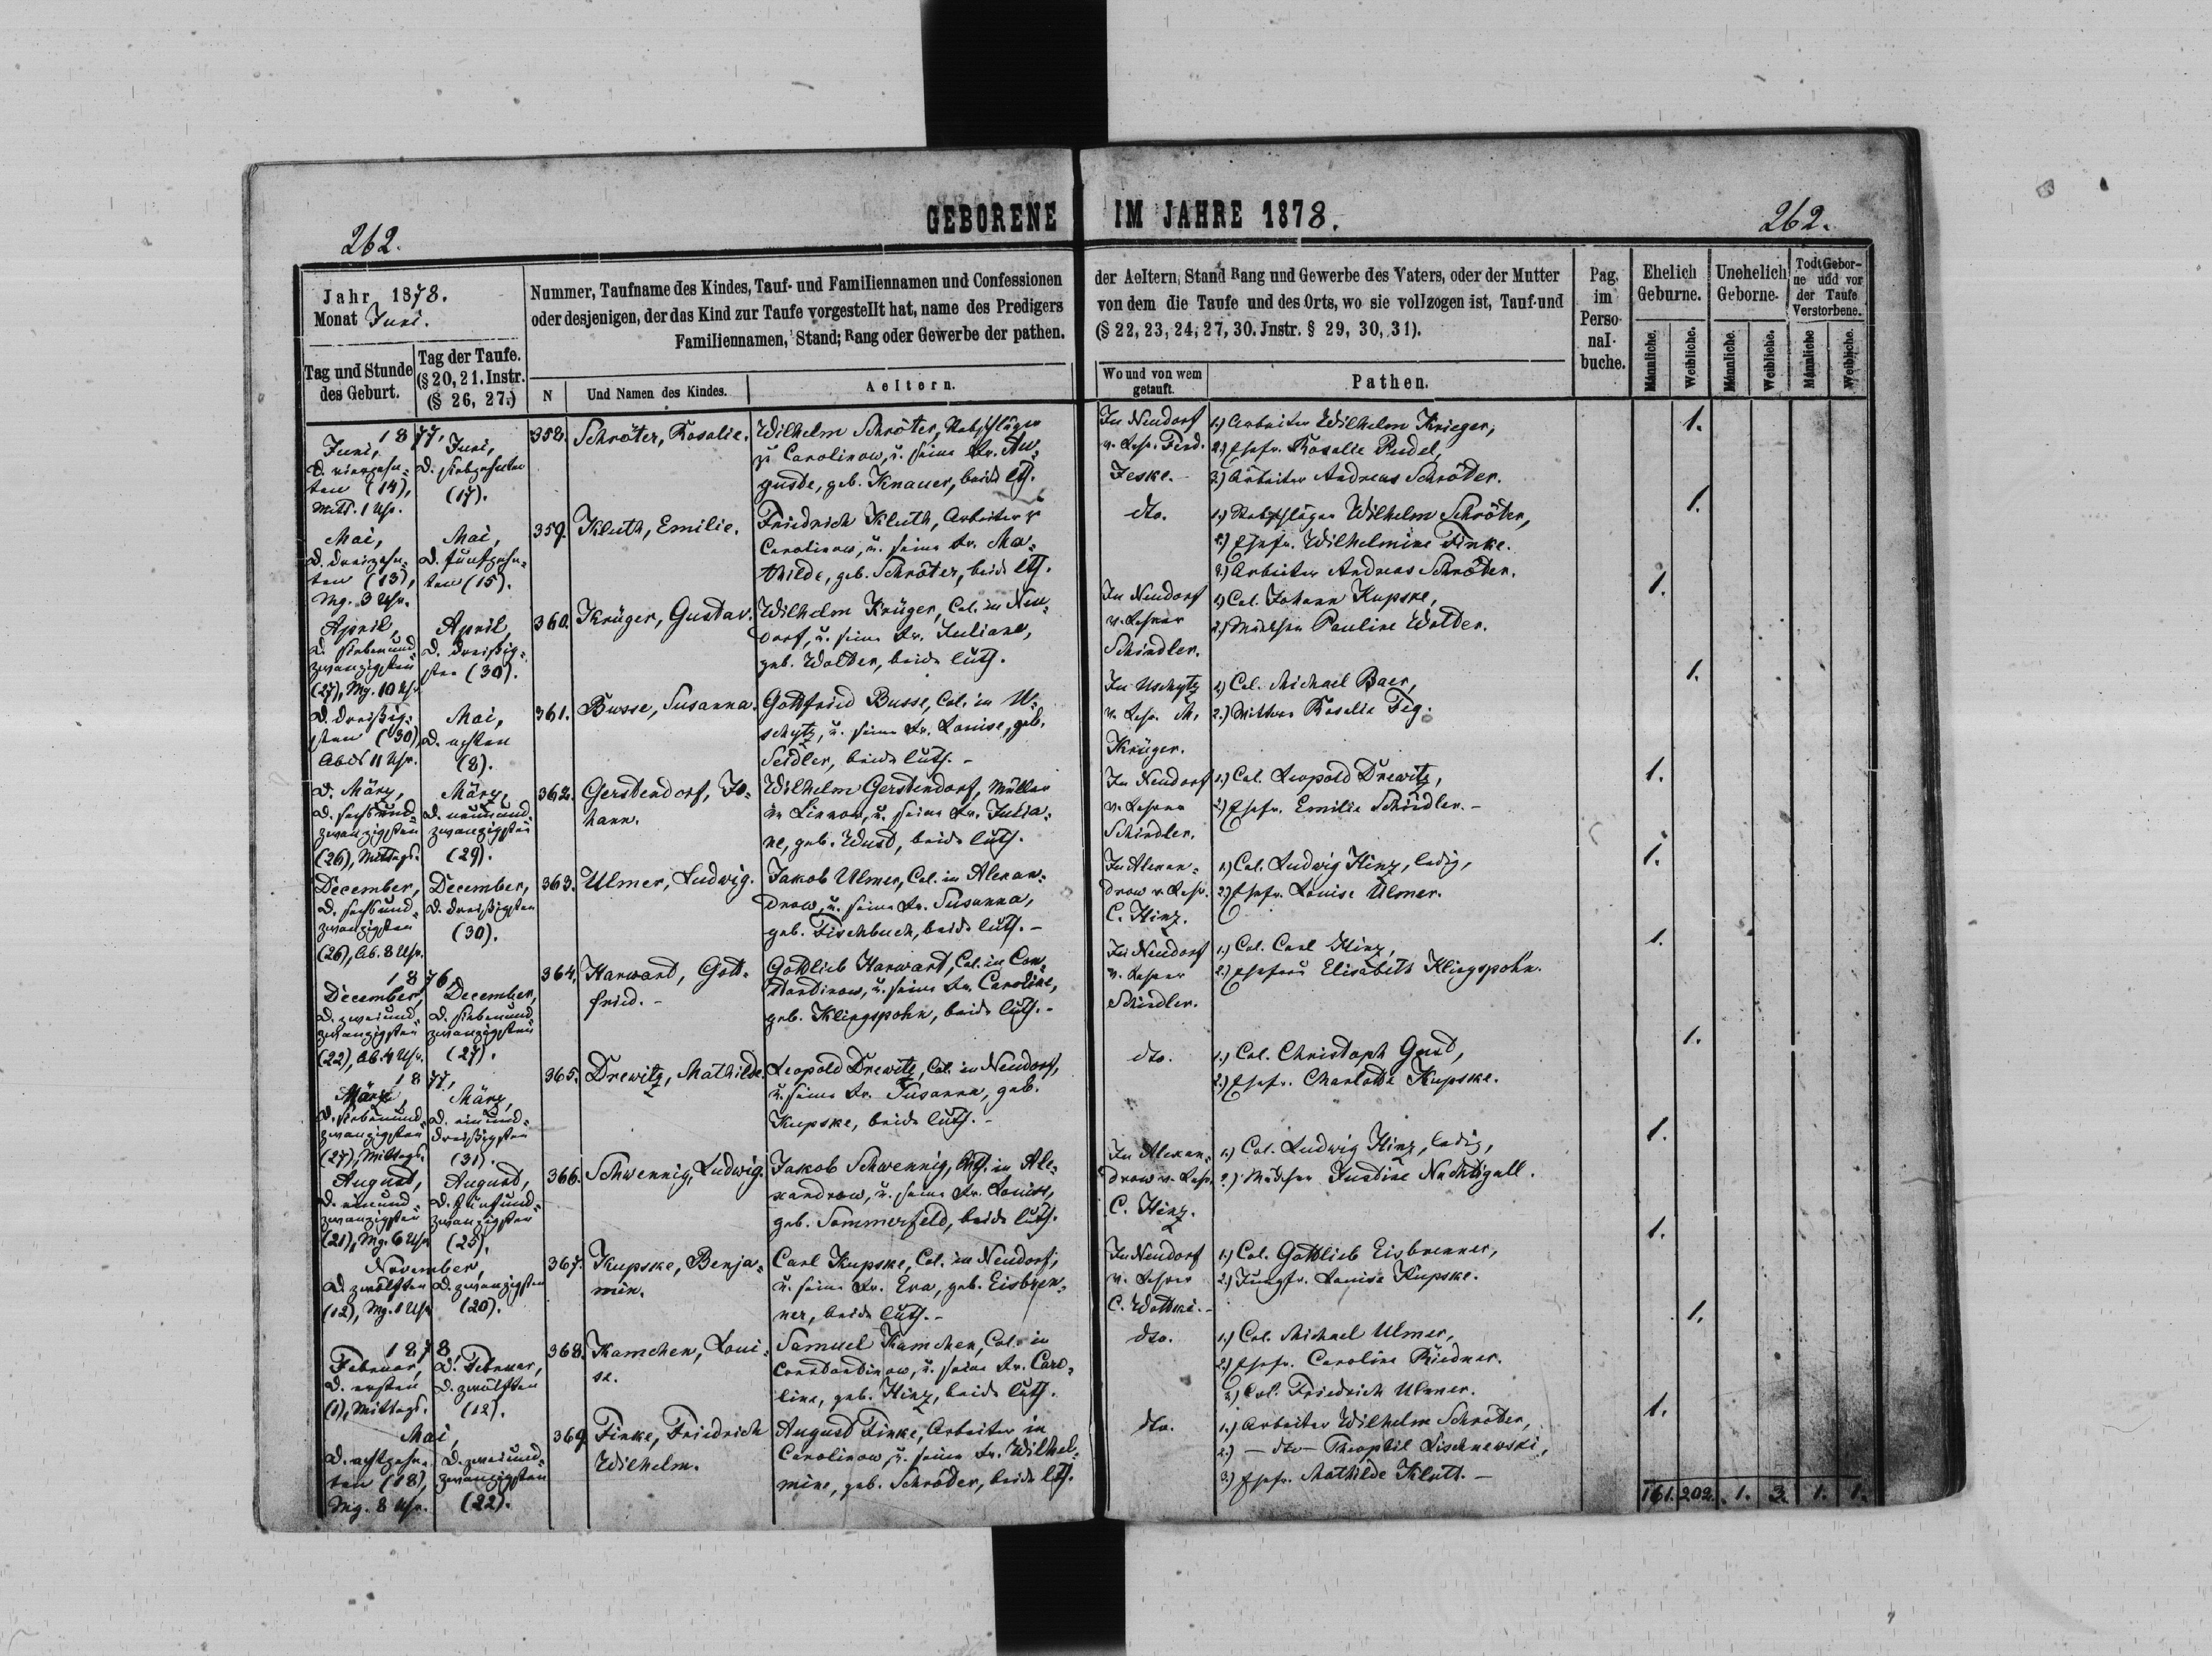 GEBORENE IM JAHRE 1878.
262.
262.
Jahr 1878.
Monat Juni.
Tag und Stunde
des Geburt.
Tag der Taufe.
(§ 20, 21. Instr.
(§ 26, 27.)
Nummer, Taufname des Kindes, Tauf- und Familiennamen und Confessionen
oder desjenigen, der das Kind zur Taufe vorgestellt hat, name des Predigers
Familiennamen, Stand; Rang oder Gewerbe der pathen.
N
Und Namen des Kindes.
Aeltern.
der Aeltern, Stand Rang und Gewerbe des Vaters, oder der Mutter
von dem die Taufe und des Orts, wo sie vollzogen ist, Tauf-und
(§ 22, 23, 24, 27, 30. Jnstr. § 29, 30, 31).
Wo und von wem
getauft.
Pathen.
Pag.
im
Perso-
nal-
buche.
Ehelich
Geburne.
Unehelich
Geborne.
Todt Gebor-
ne und vor
der Taufe
Verstorbene.
Männliche.
Weibliche.
Männliche.
Weibliche.
Männliche
Weibliche.
1877,
Juni,
d. vierzehn-
ten (14),
Mitt. 1 Uhr.
Juni,
d. siebzehnten
(17).
358.
Schröter, Rosalie.
Wilhelm Schröter,
zu Carolinow, u. seine Fr. Au-
guste, geb. Knauer, beide lth.
In Neudorf
v. Lehr. Ferd.
Jeske.
1.) Arbeiter Wilhelm Krieger,
2.) Ehefr. Rosalie Pudel,
3.) Arbeiter Andreas Schröder.
1.
Mai,
d. dreizehn-
ten (13),
Mg. 3 Uhr.
Mai,
d. fünfzehn-
ten (15).
359.
Kluth, Emilie.
Friedrich Kluth, Arbeiter
Carolinow, u. seine Fr. Ma-
thilde, geb. Schröter, beide lth.
dto.
1.) Wilhelm Schröter,
2.) Ehefr. Wilhelmine Finke.
3.) Arbeiter Andreas Schröder.
1.
April,
d. siebenund-
zwanzigsten
(27), Mg. 10 Uhr
April,
d. dreißig-
sten (30).
360.
Krüger, Gustav.
Wilhelm Krüger, Col. in Neu-
dorf, u. seine Fr. Juliane,
geb. Wolter, beide luth.
In Neudorf
v. Lehrer
Schindler.
1.) Col. Johann Kupske,
2.) Mädchen Pauline Wolter.
1.
d. dreißig-
sten (30),
Abds 11 Uhr.
Mai,
d. achten
(8).
361.
Busse, Susanna.
Gottfried Busse, Col. in U-
schytz, u. seine Fr. Louise, geb.
Seidler, beide luth. -
In Uschytz
v. Lehr. M.
Krüger.
1.) Col. Michael Baer,
2.) Rosalie
1.
d. März,
d. sechsund-
zwanzigsten
(26), Mittags.
März,
d. neunund-
zwanzigsten
(29).
362.
Gerstendorf, Jo-
hann.
Wilhelm Gerstendorf, Müller
in Linnow, u. seine Fr. Julia-
ne, geb. Wust, beide luth.
In Neudorf
v. Lehrer
Schindler.
1.) Col. Leopold Drewitz,
2.) Ehefr. Emilie Schindler. -
1.
December,
d. sechsund-
zwanzigsten
(26), Ab. 8 Uhr.
December,
d. dreißigsten
(30).
363.
Ulmer, Ludwig.
Jakob Ulmer, Col. in Alexan-
drow, u. seine Fr. Susanna,
geb. Fischbuch, beide luth. -
In Alexan-
drow v. Lehr.
C. Hinz.
1.) Col. Ludwig Hinz, ledig,
2.) Ehefr. Louise Ulmer.
1.
1876,
December,
d. zweiund-
zwanzigsten
(22), Ab. 4 Uhr.
December,
d. siebenund-
zwanzigsten
(27).
364.
Harwart, Gott-
fried. -
Gottlieb Harwart, Col. in Con-
stantinow, u. seine Fr. Caroline,
geb. Klingspohn, beide luth. -
In Neudorf
v. Lehrer
Schindler.
1.) Col. Carl Hinz,
2.) Ehefrau Elisabeth Klingspohn.
1.
1877,
März,
d. siebenund-
zwanzigsten
(27), Mittags.
März,
d. einund-
dreißigsten
(31).
365.
Drewitz, Mathilde.
Leopold Drewitz, Col. in Neudorf,
u. seine Fr. Susanna, geb.
Kupske, beide luth. -
dto.
1.) Col. Christoph Gust,
2.) Ehefr. Charlotte Kupske.
1.
August,
d. einund-
zwanzigsten
(21), Mg. 6 Uhr
August,
d. fünfund-
zwanzigsten
(25).
366.
Schwennig, Ludwig.
Jakob Schwennig, in Ale-
xandrow, u. seine Fr. Louise,
geb. Sommerfeld, beide luth.
In Alexan-
drow v. Lehr.
C. Hinz.
1.) Col. Ludwig Hinz, ledig,
2.) Mädchen Justine Nachtigall.
1.
November,
d. zwölften
(12), Mg. 1 Uhr
d. zwanzigsten
(20).
367.
Kupske, Benja-
min.
Carl Kupske, Col. in Neudorf,
u. seine Fr. Eva, geb. Eisbren-
ner, beide luth. -
In Neudorf
v. Lehrer
C. Wottke. -
1.) Col. Gottlieb Eisbrenner,
2.) Jungfr. Louise Kupske.
1.
1878,
Februar,
d. ersten
(1), Mittags.
d. Februar,
d. zwölften
(12).
368.
Kamchen, Loui-
se.
Samuel Kamchen, Col. in
Constantinow, u. seine Fr. Caro-
line, geb. Hinz, beide luth.
dto.
1.) Col. Michael Ulmer,
2.) Ehefr. Caroline Riedner.
3.) Col. Friedrich Ulmer.
1.
Mai,
d. achtzehn-
ten (18),
Mg. 8 Uhr.
d. zweiund-
zwanzigsten
(22).
369.
Finke, Friedrich
Wilhelm.
August Finke, Arbeiter in
Carolinow, u. seine Fr. Wilhel-
mine, geb. Schröder, beide lth.
dto.
1.) Arbeiter Wilhelm Schröder,
2.) - dto - Theophil Lischnewski,
3.) Ehefr. Mathilde Klutt. -
1.
161. 202. 1. 3. 1. 1.